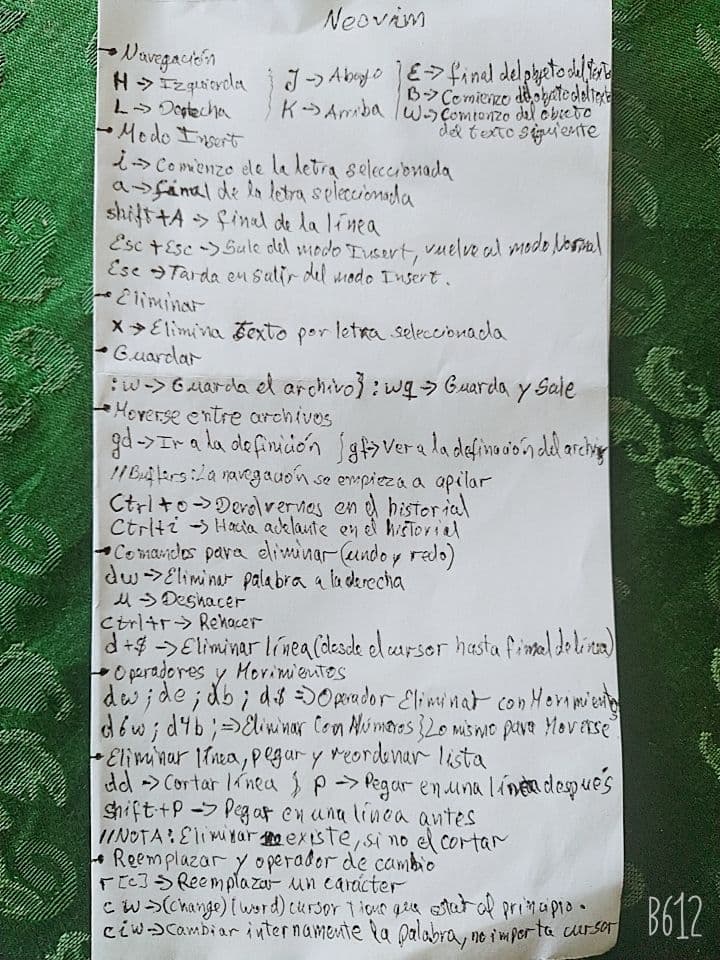 Neovim
Navegación
H → Izquierda } J → Abajo } E → final del objeto del texto
B → Comienzo del objeto del texto
L → Derecha } K → Arriba } W → Comienzo del objeto
del texto siguiente
Modo Insert
i → Comienzo de la letra seleccionada
a → final de la letra seleccionada
shift+A → final de la línea
Esc + Esc → Sale del modo Insert, vuelve al modo Normal
Esc → Tarda en salir del modo Insert.
Eliminar
x → Elimina texto por letra seleccionada
Guardar
:w → Guarda el archivo } :wq → Guarda y Sale
Moverse entre archivos
gd → Ir a la definición } gf → Ver a la definación del archivo
//Buffers: La navegación se empieza a apilar
Ctrl+o → Devolvernos en el historial
Ctrl+i → Hacia adelante en el historial
Comandos para eliminar (undo y redo)
dw → Eliminar palabra a la derecha
u → Deshacer
ctrl+r → Rehacer
d+$ → Eliminar línea (desde el cursor hasta final de línea)
Operadores y Movimientos
dw ; de ; db ; d$ => Operador Eliminar con Movimiento
d6w ; d4b ; => Eliminar Con Números } Lo mismo para Moverse
Eliminar línea, pegar y reordenar lista
dd → Cortar línea } p → Pegar en una línea después
shift+P → Pegar en una línea antes
//NOTA: Eliminar existe, si no el cortar
Reemplazar y operador de cambio
r[c] → Reemplazar un carácter
c w → (change) (word) cursor Tiene que estar al principio.
c i w → Cambiar internamente la palabra, no importa cursor
B612